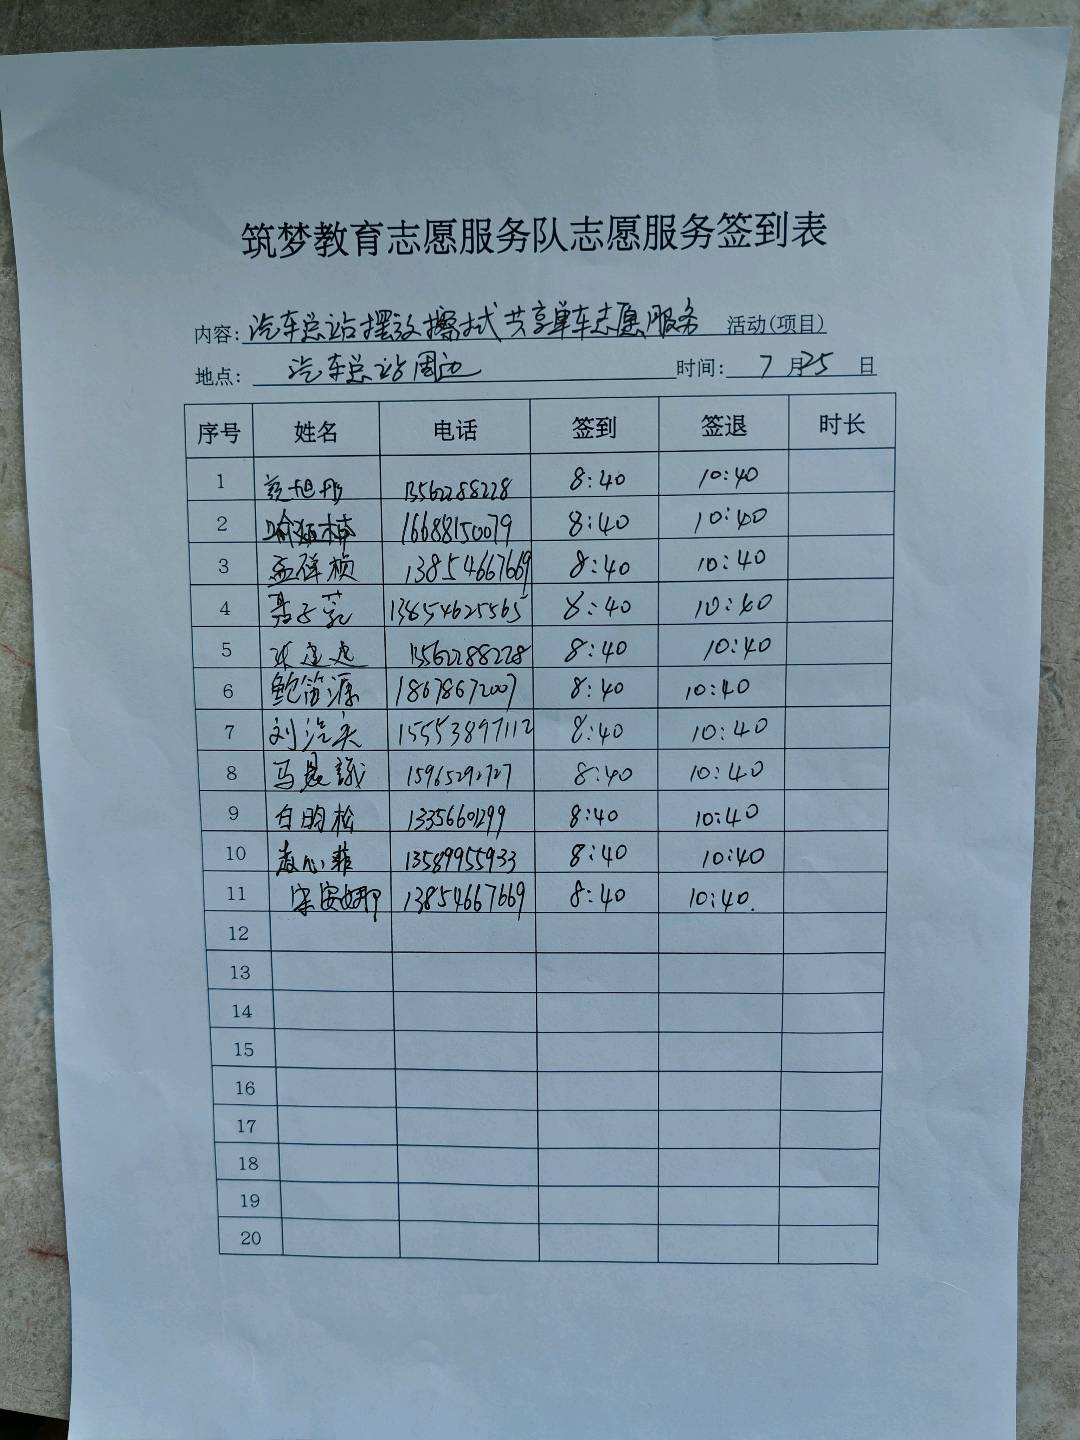 筑梦教育志愿服务队志愿服务签到表
内容：汽车总站摆放擦拭共享单车志愿服务 活动(项目)
地点：汽车总站周边 时间：7月25日
序号 姓名 电话 签到 签退 时长
1 13562288228 8:40 10:40
2 16688150079 8:40 10:40
3 孟祥桢 13854667669 8:40 10:40
4 13854625565 8:40 10:40
5 13562288228 8:40 10:40
6 鲍笛源 18678672007 8:40 10:40
7 刘汽 15553897112 8:40 10:40
8 马晨 15965292727 8:40 10:40
9 白昀松 13356601299 8:40 10:40
10 心菲 13589955933 8:40 10:40
11 宋安娜 13854667669 8:40 10:40.
12
13
14
15
16
17
18
19
20